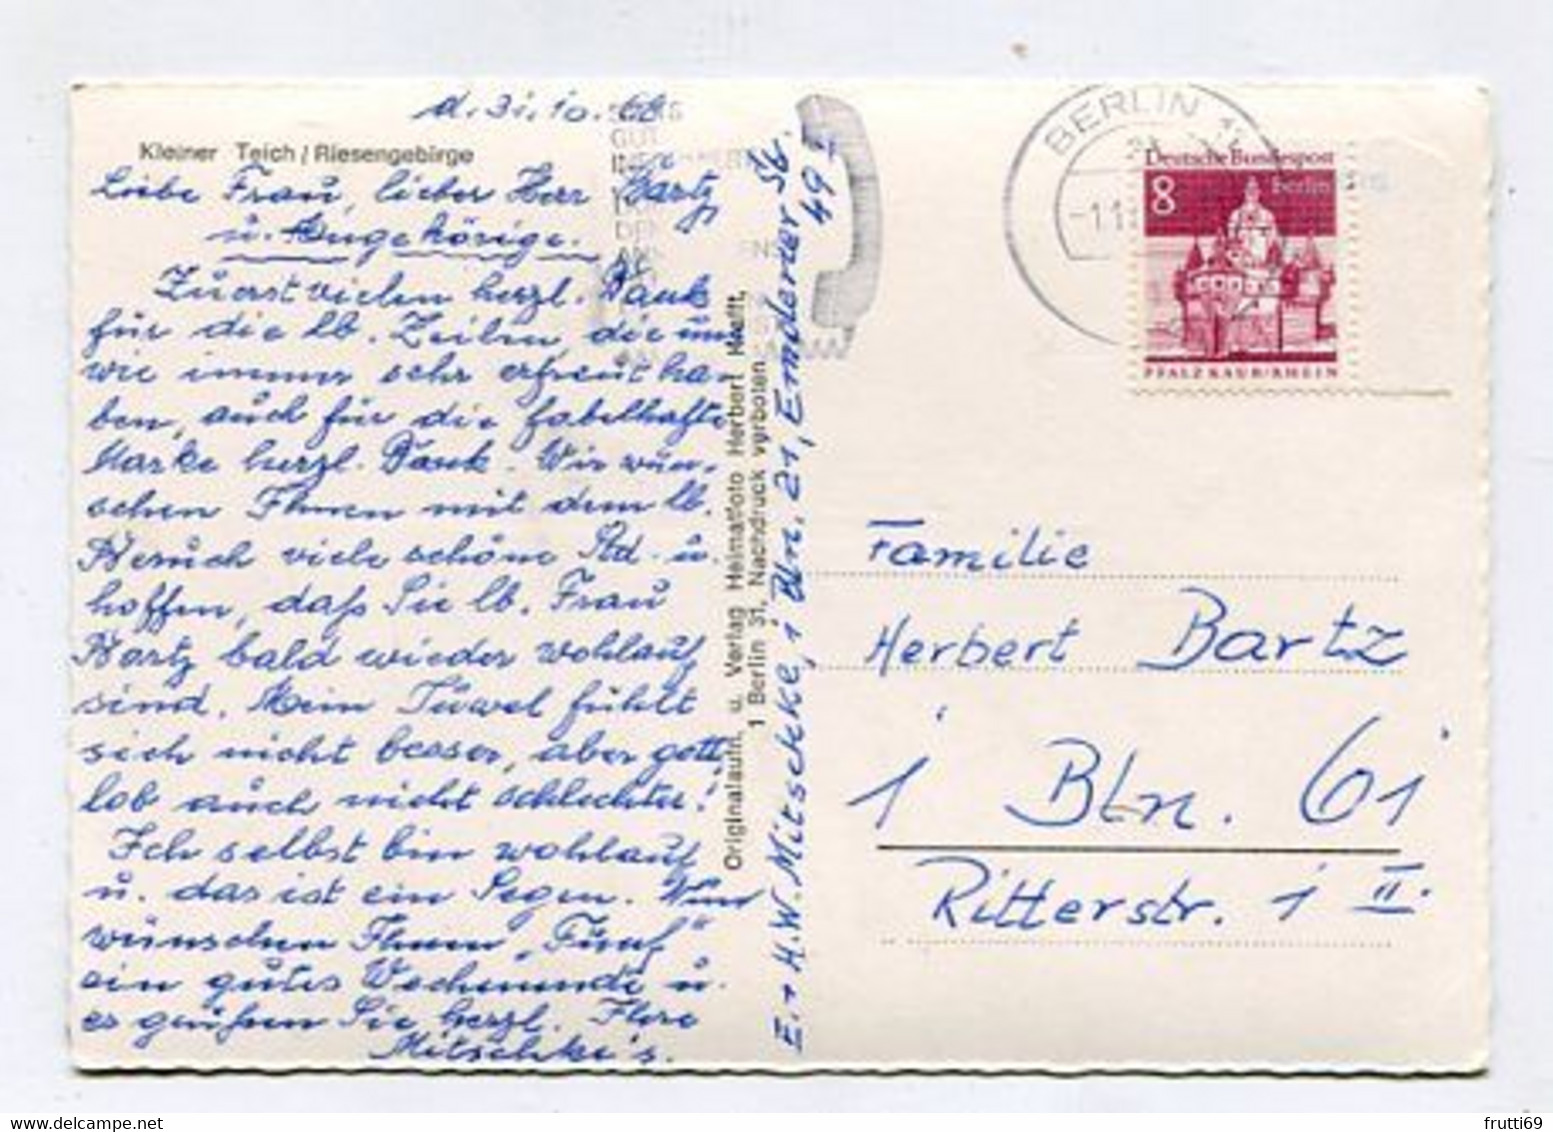 d. 31.10.68
Kleiner Teich / Riesengebirge
Liebe Frau, lieber Herr Bartz
u. Angehörige.
Zuerst vielen herzl. Dank
für die lb. Zeilen die uns
wie immer sehr erfreut ha-
ben, auch für die fabelhafte
Marke herzl. Dank. Wir wün-
schen Ihnen mit dem lb.
Besuch viele schöne Std. u.
hoffen, daß Sie lb. Frau
Bartz bald wieder wohlauf
sind. Mein Juwel fühlt
sich nicht besser, aber gott
lob auch nicht schlechter!
Ich selbst bin wohlauf
u. das ist ein Segen. Nun
wünschen Ihnen „Fünf"
ein gutes Wochenende u.
es grüßen Sie herzl. Ihre
Mitschke's.
Originalaufn. u. Verlag Heimatfoto Herbert Hielft,
1 Berlin 31, Nachdruck verboten
E. + H.W. Mitschke, 1 Bln. 21, Emdener Str.
49 I
GUT
BERLIN 11
-1.1
Deutsche Bundespost
8 Berlin
PFALZ KAUB/RHEIN
Familie
Herbert Bartz
1 Bln. 61
Ritterstr. 1 II.
frutti69